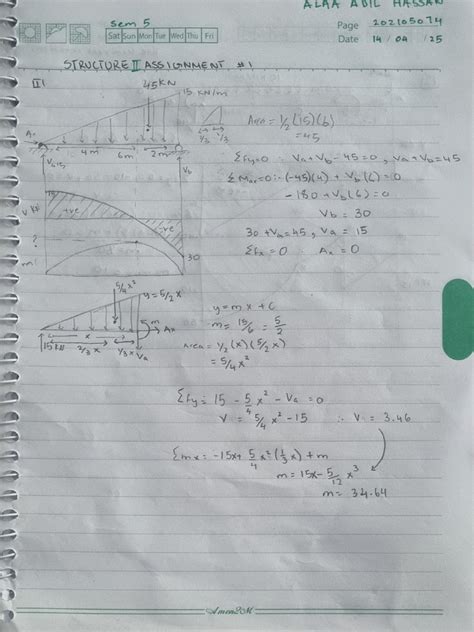 ALAA ADIL HASSAN
Sem 5
Sat Sun Mon Tue Wed Thu Fri
Page 202105074
Date 14 / 04 / 25
STRUCTURE II ASSIGNMENT #1
45KN
15 KN/m
Area = 1/2 (15)(6)
= 45
4m 6m 2m
ΣFy=0 Va+Vb-45=0, Va+Vb=45
(-45)(4) + Vb(6)=0
-180+Vb(6)=0
Vb = 30
30+Va=45, Va = 15
ΣFx=0 Ax=0
V KN
+ve
30
m
5/4 x²
y=5/2 x
m
Ax
15 KN 2/3 x 1/3 x Va
y = mx + c
m = 15/6 = 5/2
Area = 1/2 (x)(5/2 x)
= 5/4 x²
ΣFy = 15 - 5/4 x² - Va = 0
V = 5/4 x² - 15 ∴ V = 3.46
Σmx = -15x + 5/4 x² (1/3 x) + m
m = 15x - 5/12 x³
m = 34.64